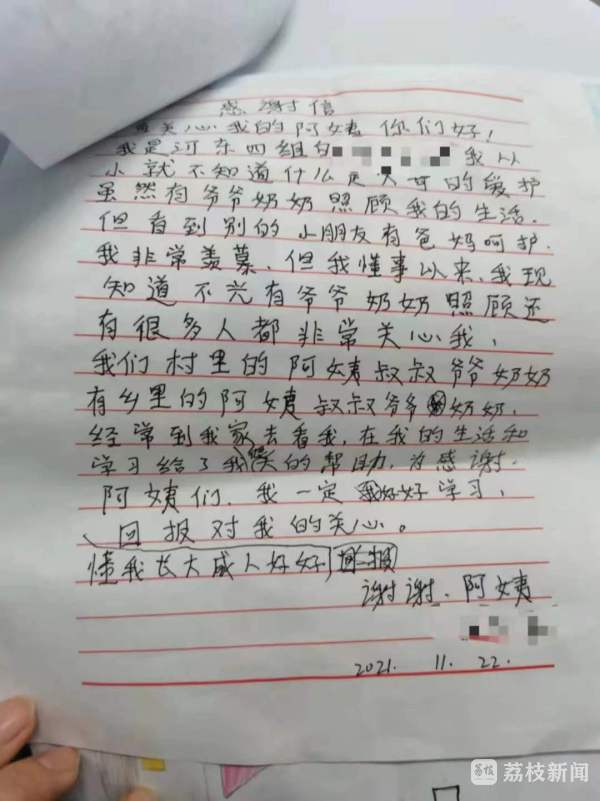 感谢信
关心我的阿姨你们好！
我是河东四组的 我从
小就不知道什么是 的爱护
虽然有爷爷奶奶照顾我的生活.
但看到别的小朋友有爸妈呵护.
我非常羡慕.但我懂事以来、我现
知道不光有爷爷奶奶照顾还
有很多人都非常关心我、
我们村里的阿姨叔叔爷爷奶奶
有乡里的阿姨叔叔爷爷奶奶.
经常到我家去看我,在我的生活和
学习给了我 的帮助,为感谢.
阿姨们.我一定好好学习、
、回报对我的关心。
懂我长大成人好好
谢谢.阿姨
2021. 11. 22.
荔枝新闻